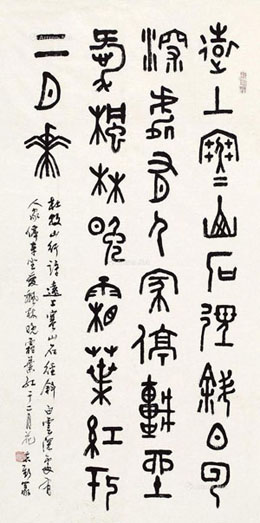 遠上寒山石徑斜白雲
深處有人家停車坐
愛楓林晚霜葉紅於
二月花
杜牧山行詩遠上寒山石徑斜白雲深處有
人家停車坐愛楓林晚霜葉紅于二月花